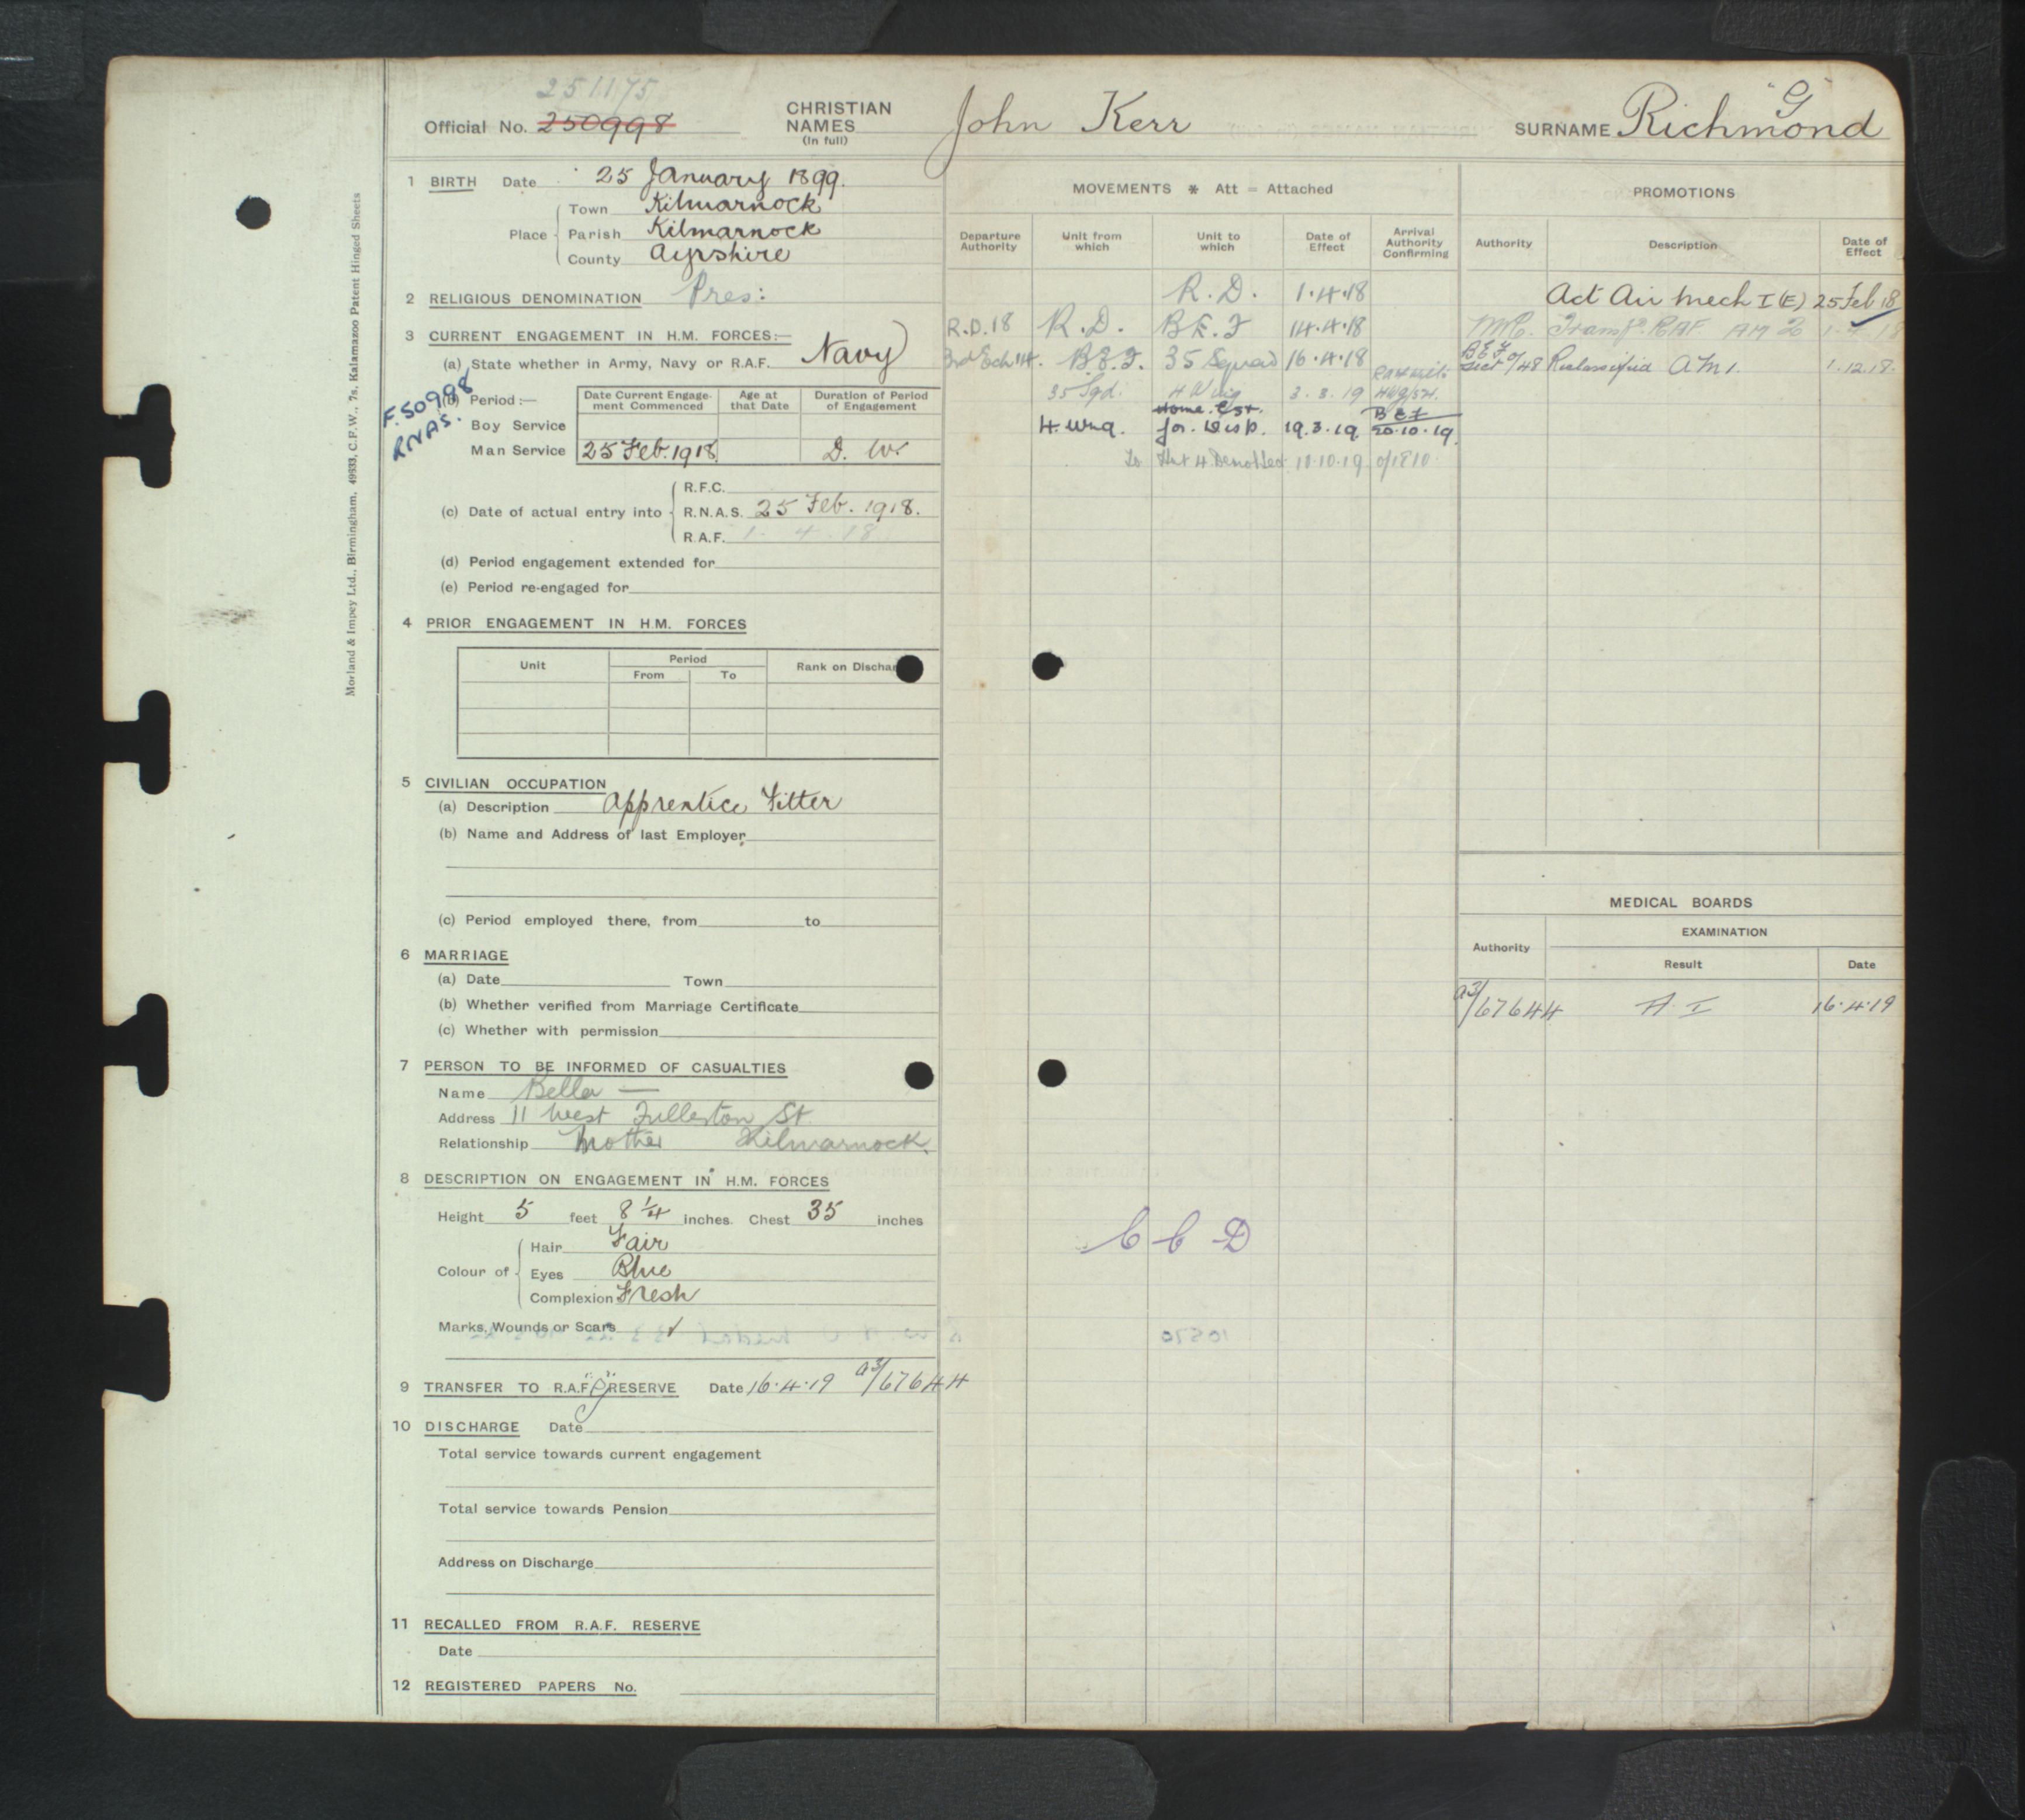 251175
Official No. 250998
CHRISTIAN NAMES (In full) John Kerr
"G"
SURNAME Richmond
Morland & Impey Ltd., Birmingham. 49833, C.F.W., 7s. Kalamazoo Patent Hinged Sheets
1 BIRTH Date 25 January 1899.
Place Town Kilmarnock
Parish Kilmarnock
County Ayrshire
2 RELIGIOUS DENOMINATION Pres:
3 CURRENT ENGAGEMENT IN H.M. FORCES:—
(a) State whether in Army, Navy or R.A.F. Navy
F.50998
RNAS.
(b) Period :—
Date Current Engagement Commenced Age at that Date Duration of Period of Engagement
Boy Service
Man Service 25 Feb. 1918 D. W.
(c) Date of actual entry into
R.F.C.
R.N.A.S. 25 Feb. 1918.
R.A.F. 1. 4. 18
(d) Period engagement extended for
(e) Period re-engaged for
4 PRIOR ENGAGEMENT IN H.M. FORCES
Unit Period Rank on Dischar
From To
5 CIVILIAN OCCUPATION
(a) Description Apprentice Fitter
(b) Name and Address of last Employer
(c) Period employed there, from to
6 MARRIAGE
(a) Date Town
(b) Whether verified from Marriage Certificate
(c) Whether with permission
7 PERSON TO BE INFORMED OF CASUALTIES
Name Bella —
Address 11 West Fullerton St
Relationship Mother Kilmarnock.
8 DESCRIPTION ON ENGAGEMENT IN H.M. FORCES
Height 5 feet 8 1/4 inches. Chest 35 inches
Colour of
Hair Fair
Eyes Blue
Complexion Fresh
Marks, Wounds or Scars
9 TRANSFER TO R.A.F. "G" RESERVE Date 16.4.19 a3/67644
10 DISCHARGE Date
Total service towards current engagement
Total service towards Pension
Address on Discharge
11 RECALLED FROM R.A.F. RESERVE
Date
12 REGISTERED PAPERS No.
MOVEMENTS * Att = Attached
Departure Authority Unit from which Unit to which Date of Effect Arrival Authority Confirming
R.D. 1.4.18
R.D.18 R.D. B.E.F 14.4.18
3rd Ech 114. B.E.F. 35 Squad 16.4.18
35 Sqd. 4 Wing 3.3.19
4. Wng. Home Est. for Disp. 19.3.19 BEF 20.10.19
10.10.19
C C D
PROMOTIONS
Authority Description Date of Effect
Act Air Mech I (E) 25 Feb 18
Transf. RAF AM 2 1.4.18
BEF Reclassified AM1. 1.12.18.
MEDICAL BOARDS
EXAMINATION
Authority Result Date
a3/67644 A I 16.4.19